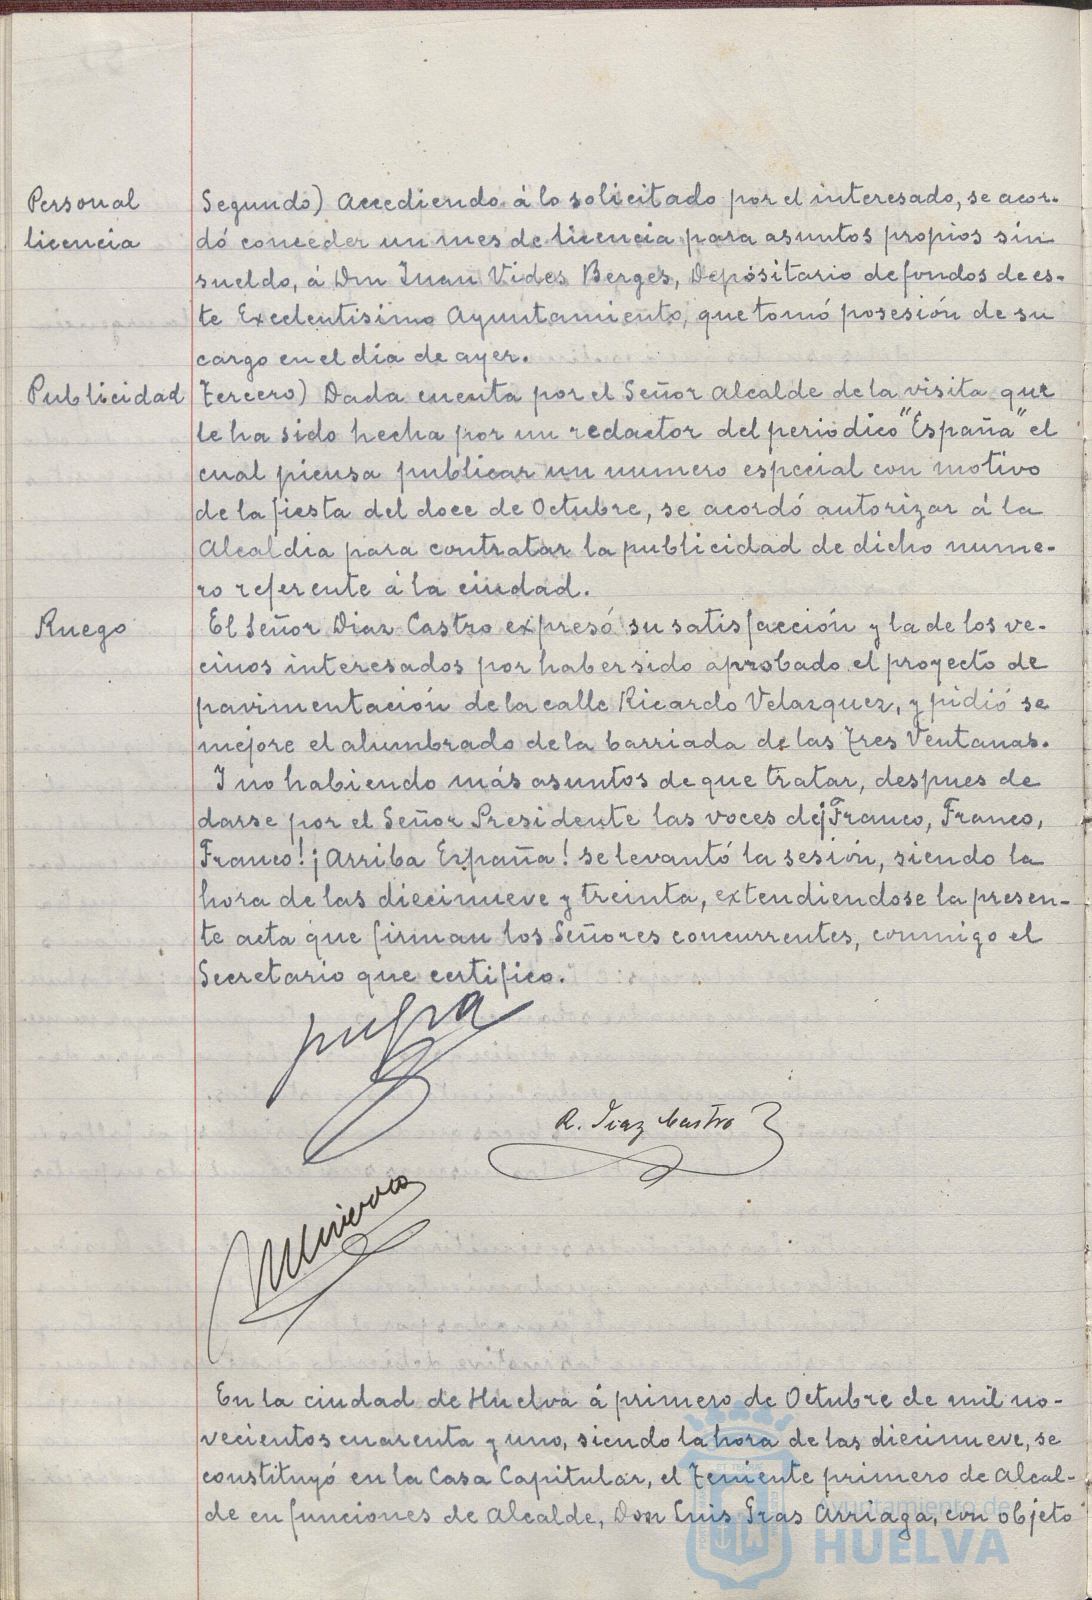 Personal
licencia
Segundo) Accediendo á lo solicitado por el interesado, se acor-
dó conceder un mes de licencia para asuntos propios sin
sueldo, á Don Juan Vides Berges, Depositario de fondos de es-
te Excelentisimo Ayuntamiento, que tomó posesión de su
cargo en el día de ayer.
Publicidad
Tercero) Dada cuenta por el Señor Alcalde de la visita que
le ha sido hecha por un redactor del periodico "España" el
cual piensa publicar un numero especial con motivo
de la fiesta del doce de Octubre, se acordó autorizar á la
Alcaldia para contratar la publicidad de dicho nume-
ro referente á la ciudad.
Ruego
El Señor Diaz Castro expresó su satisfacción y la de los ve-
cinos interesados por haber sido aprobado el proyecto de
pavimentación de la calle Ricardo Velazquez, y pidió se
mejore el alumbrado de la barriada de las Tres Ventanas.
I no habiendo más asuntos de que tratar, despues de
darse por el Señor Presidente las voces de ¡Franco, Franco,
Franco! ¡Arriba España! se levantó la sesión, siendo la
hora de las diecinueve y treinta, extendiendose la presen-
te acta que firman los Señores concurrentes, conmigo el
Secretario que certifico.
R. Diaz Castro
En la ciudad de Huelva á primero de Octubre de mil no-
vecientos cuarenta y uno, siendo la hora de las diecinueve, se
constituyó en la Casa Capitular, el Teniente primero de Alcal-
de en funciones de Alcalde, Don Luis Gras Arriaga, con objeto
Ayuntamiento de
HUELVA